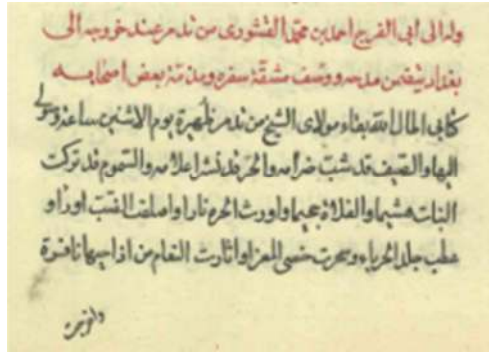 وله الى ابي الفرج احمد بن محمد القشورى من تدمر عند خروجه الى
بغداد يتضمن مدحه ووصف مشقة سفره ومذمة بعض اصحابه
كتابي اطال الله بقاء مولاى الشيخ من تدمر ظهيرة يوم الاثنين ساعة وصولي
اليها والصيف قد شبت ضرامه والحر قد نشر اعلامه والسموم قد تركت
النبات هشيما والفلاة جحيما واورث الحره نارا واصلت القتب اوزاو
جلد الحرباء المعزا واثارت النعام من اداحيها نافرة